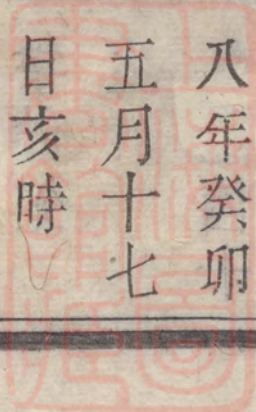 八年癸卯
五月十七
日亥時